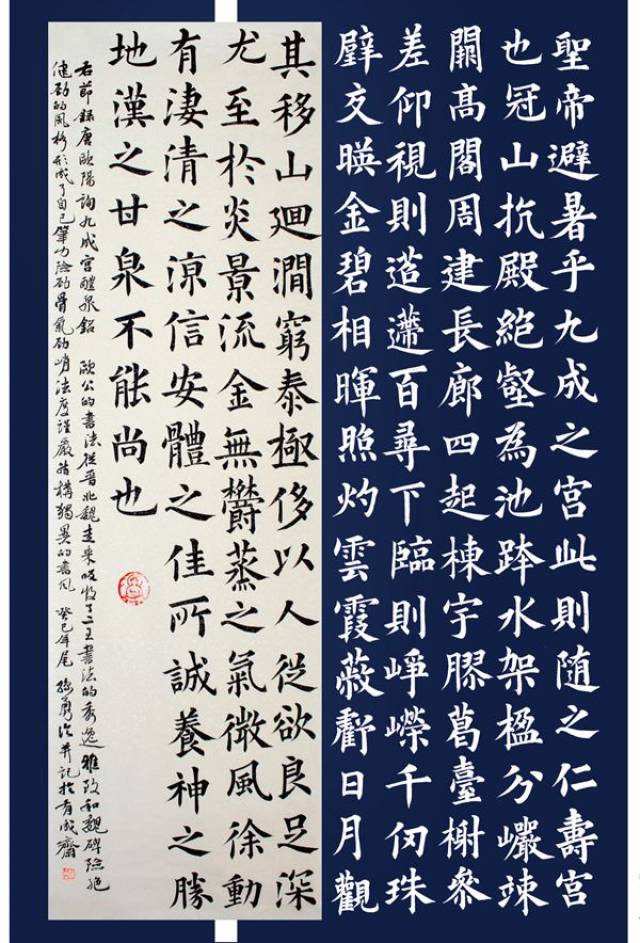 聖帝避暑乎九成之宮此則随之仁壽宮
也冠山抗殿絶壑為池跨水架楹分巗竦
闕高閣周建長廊四起棟宇膠葛臺榭叅
差仰視則迢遰百尋下臨則崢嶸千仞珠
璧交暎金碧相暉照灼雲霞蔽虧日月觀
其移山廻澗窮泰極侈以人從欲良足深
尤至於炎景流金無欝蒸之氣微風徐動
有淒清之涼信安體之佳所誠養神之勝
地漢之甘泉不能尚也
右節錄唐歐陽詢九成宮醴泉銘 歐公的書法從晉北魏走來吸收了二王書法的秀逸雅致和魏碑險絶
健勁的風格形成了自己筆力險勁骨氣勁峭法度謹嚴結構獨異的書風 癸巳年尾 并記於有成齋